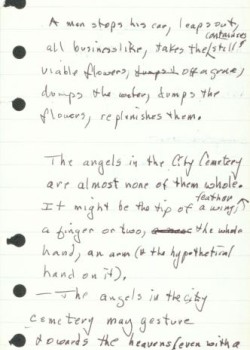 A man stops his car, leaps out,
all businesslike, takes the (still
containers
viable flowers, dumps off a grave,
dumps the water, dumps the
flowers, replenishes them.
The angels in the City Cemetery
are almost none of them whole.
It might be the tip of a wing,
feather
a finger or two, the whole
hand, an arm (& the hypothetical
hand on it).
— The angels in the city
cemetery may gesture
towards the heavens (even with a